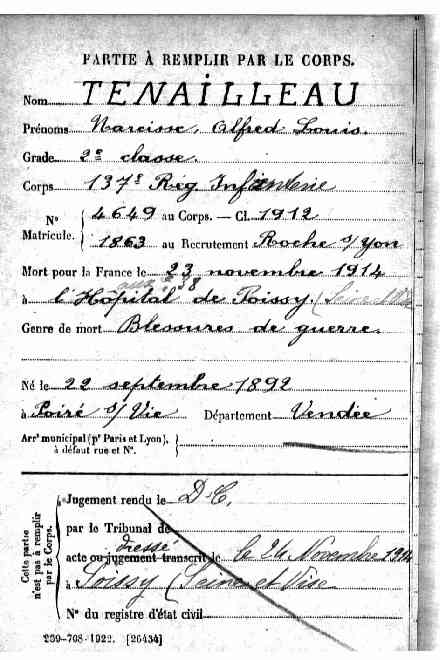 PARTIE À REMPLIR PAR LE CORPS.
Nom TENAILLEAU
Prénoms Narcisse, Alfred Louis.
Grade 2e classe.
Corps 137e Rég Infanterie
N° Matricule. { 4649 au Corps. — Cl. 1912
1863 au Recrutement Roche s/yon
Mort pour la France le 23 novembre 1914
aux 38
à l'Hôpital de Poissy. (Seine et Oise
Genre de mort Blessures de guerre.
Né le 22 septembre 1892
à Poiré s/Vie Département Vendée
Arrt municipal (pr Paris et Lyon),
à défaut rue et N°.
Cette partie n'est pas à remplir par le Corps.
Jugement rendu le D.C.
par le Tribunal de
dressé
acte ou jugement transcrit le le 24 Novembre 1914
à Poissy (Seine et Oise
N° du registre d'état civil
239-708-1922. [26434]